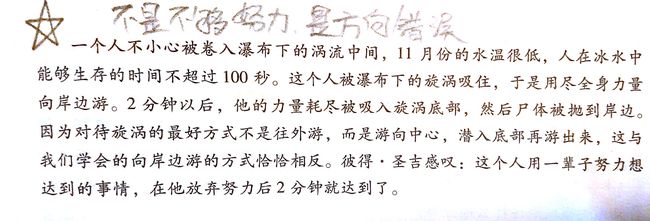 不是不够努力,是方向错误
一个人不小心被卷入瀑布下的涡流中间，11 月份的水温很低，人在冰水中
能够生存的时间不超过 100 秒。这个人被瀑布下的旋涡吸住，于是用尽全身力量
向岸边游。2 分钟以后，他的力量耗尽被吸入旋涡底部，然后尸体被抛到岸边。
因为对待旋涡的最好方式不是往外游，而是游向中心，潜入底部再游出来，这与
我们学会的向岸边游的方式恰恰相反。彼得·圣吉感叹：这个人用一辈子努力想
达到的事情，在他放弃努力后 2 分钟就达到了。